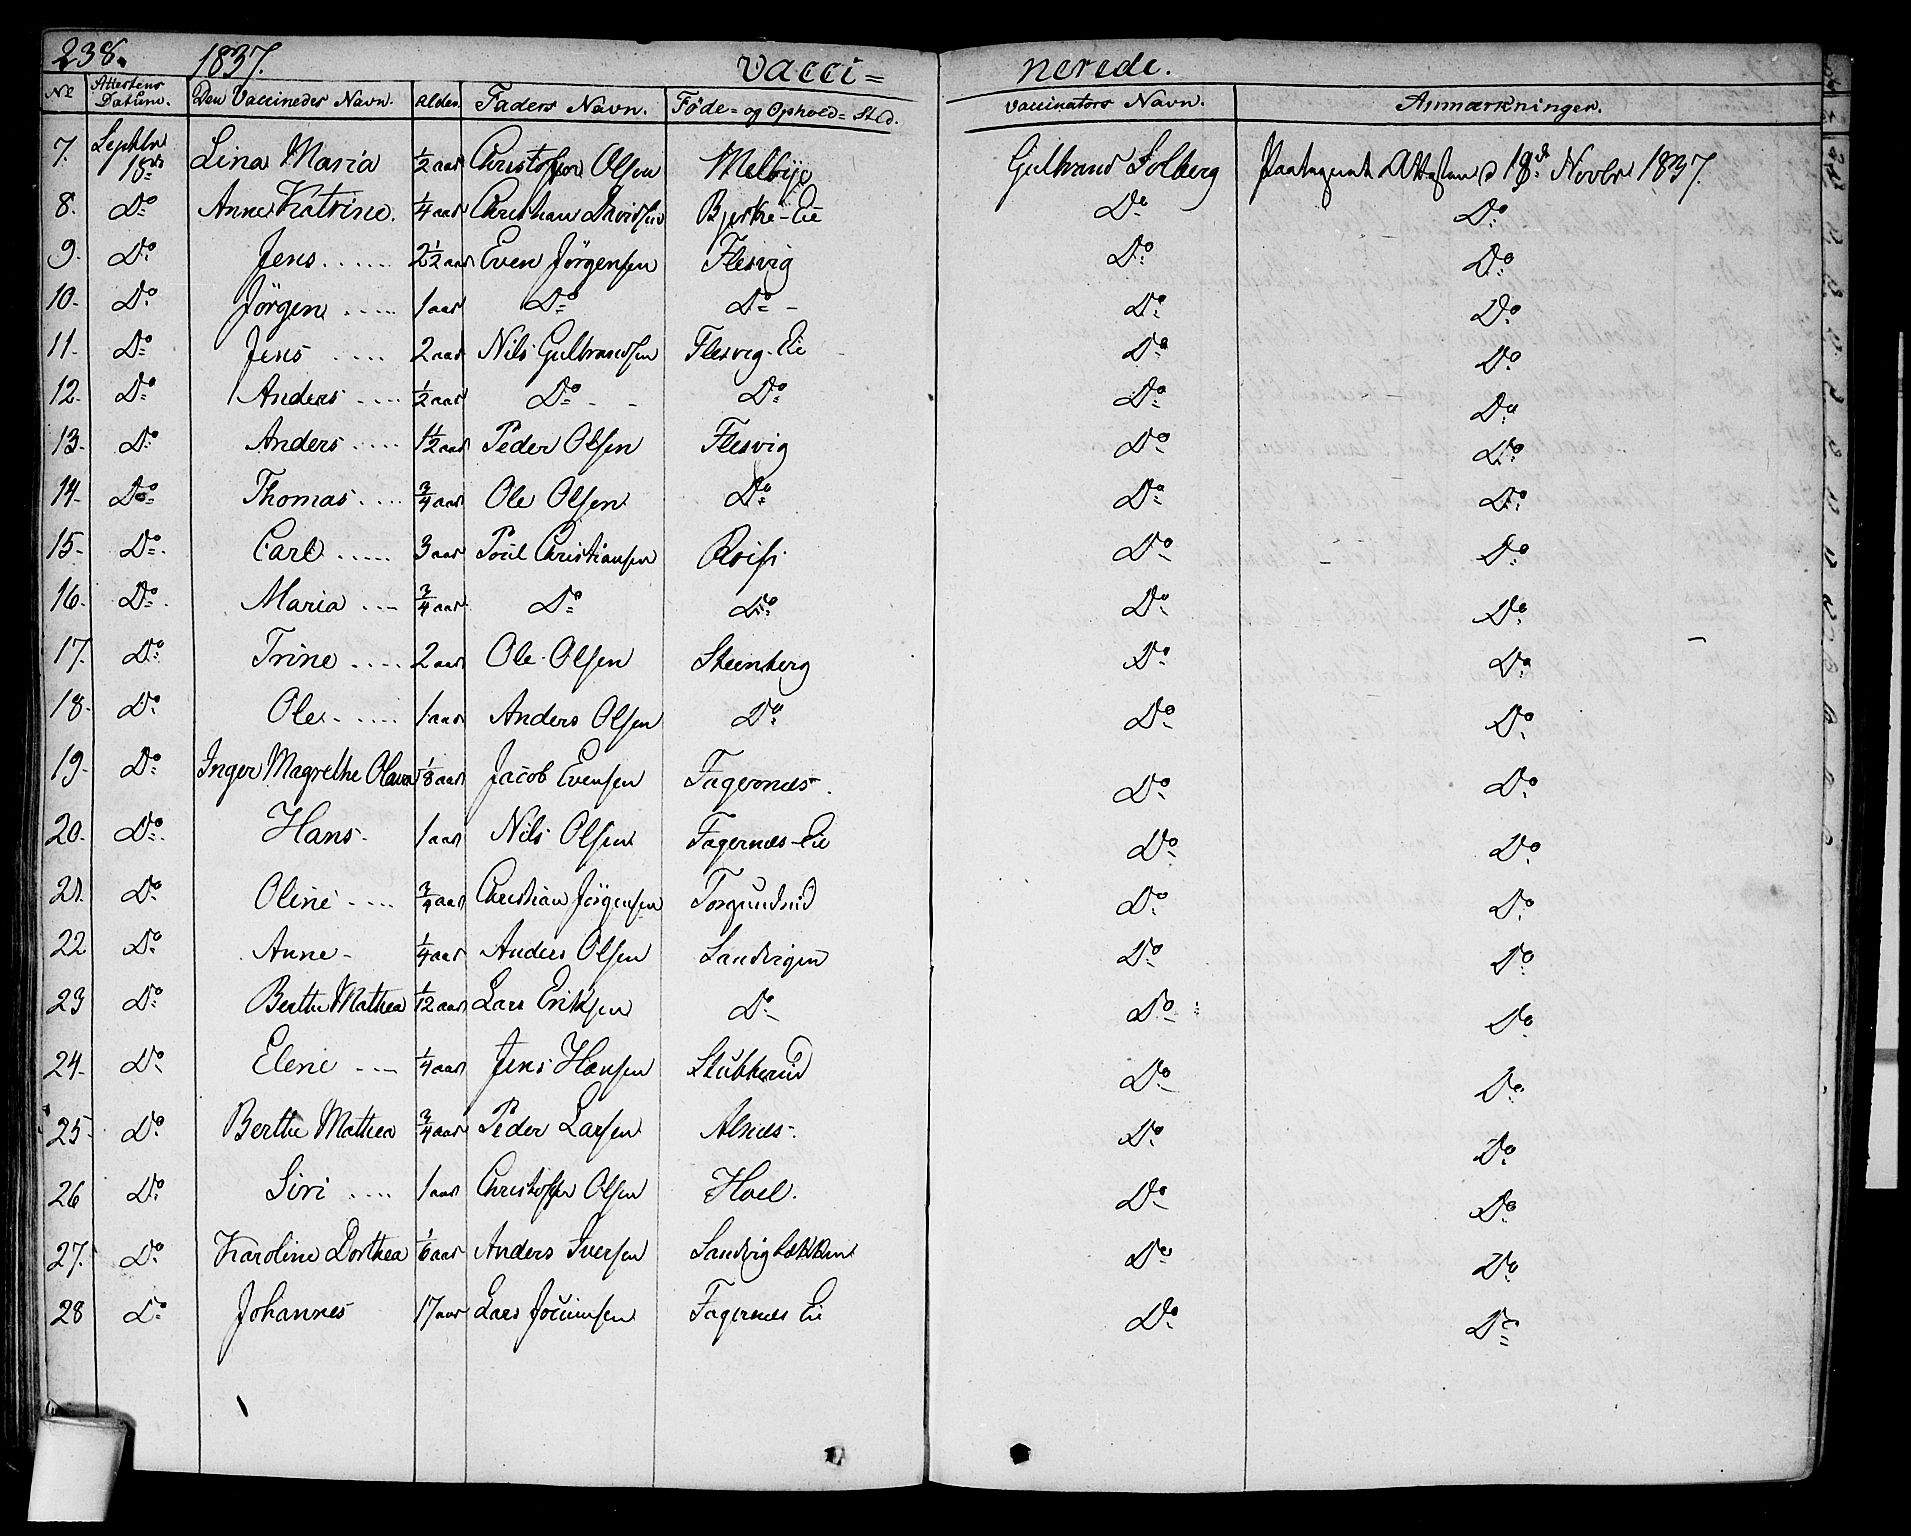 238. 1837. Vacci= nerede.
No Attestens Datum. Den Vaccinedes Navn. Alder. Faders Navn. Føde= og Ophold= Sted. Vaccinators Navn. Anmærkninger.
7. Septbr 18de Lina Maria 1/2 aar Christopher Olsen Melbye Gulbrand Solberg Attesten d 18de Novbr 1837.
8. Do Anne Katrine. 1/4 aar Christian Davidsen Bjerke-Eie Do Do
9. Do Jens..... 2 1/2 aar Even Jörgensen Flesvig Do Do
10. Do Jörgen..... 1 aar Do Do - Do Do
11. Do Jens .... 2 aar Nils Gulbrandsen Flesvig-Eie Do Do
12. Do Anders .... 1/2 aar Do - - Do Do Do
13. Do Anders .... 1 1/2 aar Peder Olsen Flesvig Do Do
14. Do Thomas.... 3/4 aar Ole Olsen Do Do Do
15. Do Carl ..... 3 aar Poul Christiansen Do Do
16. Do Maria .... 3/4 aar Do Do Do Do
17. Do Trine .... 2 aar Ole Olsen Steenberg Do Do
18. Do Ole..... 1 aar Anders Olsen Do Do Do
19. Do Inger Magrethe Olava 1/8 aar Jacob Evensen Fagernæs. Do Do
20. Do Hans- 1 aar Nils Olsen Fagernæs-Eie Do Do
21. Do Oline .... 3/4 aar Christian Jörgensen Do Do
22 Do Anne- 1/4 aar Anders Olsen Sandvigen Do Do
23 Do Berthe Mathea 1/12 aar Lars Eriksen Do Do Do
24. Do Elene --- 1/4 aar Jens Hansen Stubberud Do Do
25. Do Berthe Mathea 3/4 aar Peder Larsen Alnæs. Do Do
26 Do Siri .... 1 aar Christopher Olsen Hoel. Do Do
27. Do Karoline Dorthea 1/6 aar Anders Iversen Sandvigbækken Do Do
28 Do Johannes 17 aar Lars Jocumsen Fagernæs Eie Do Do